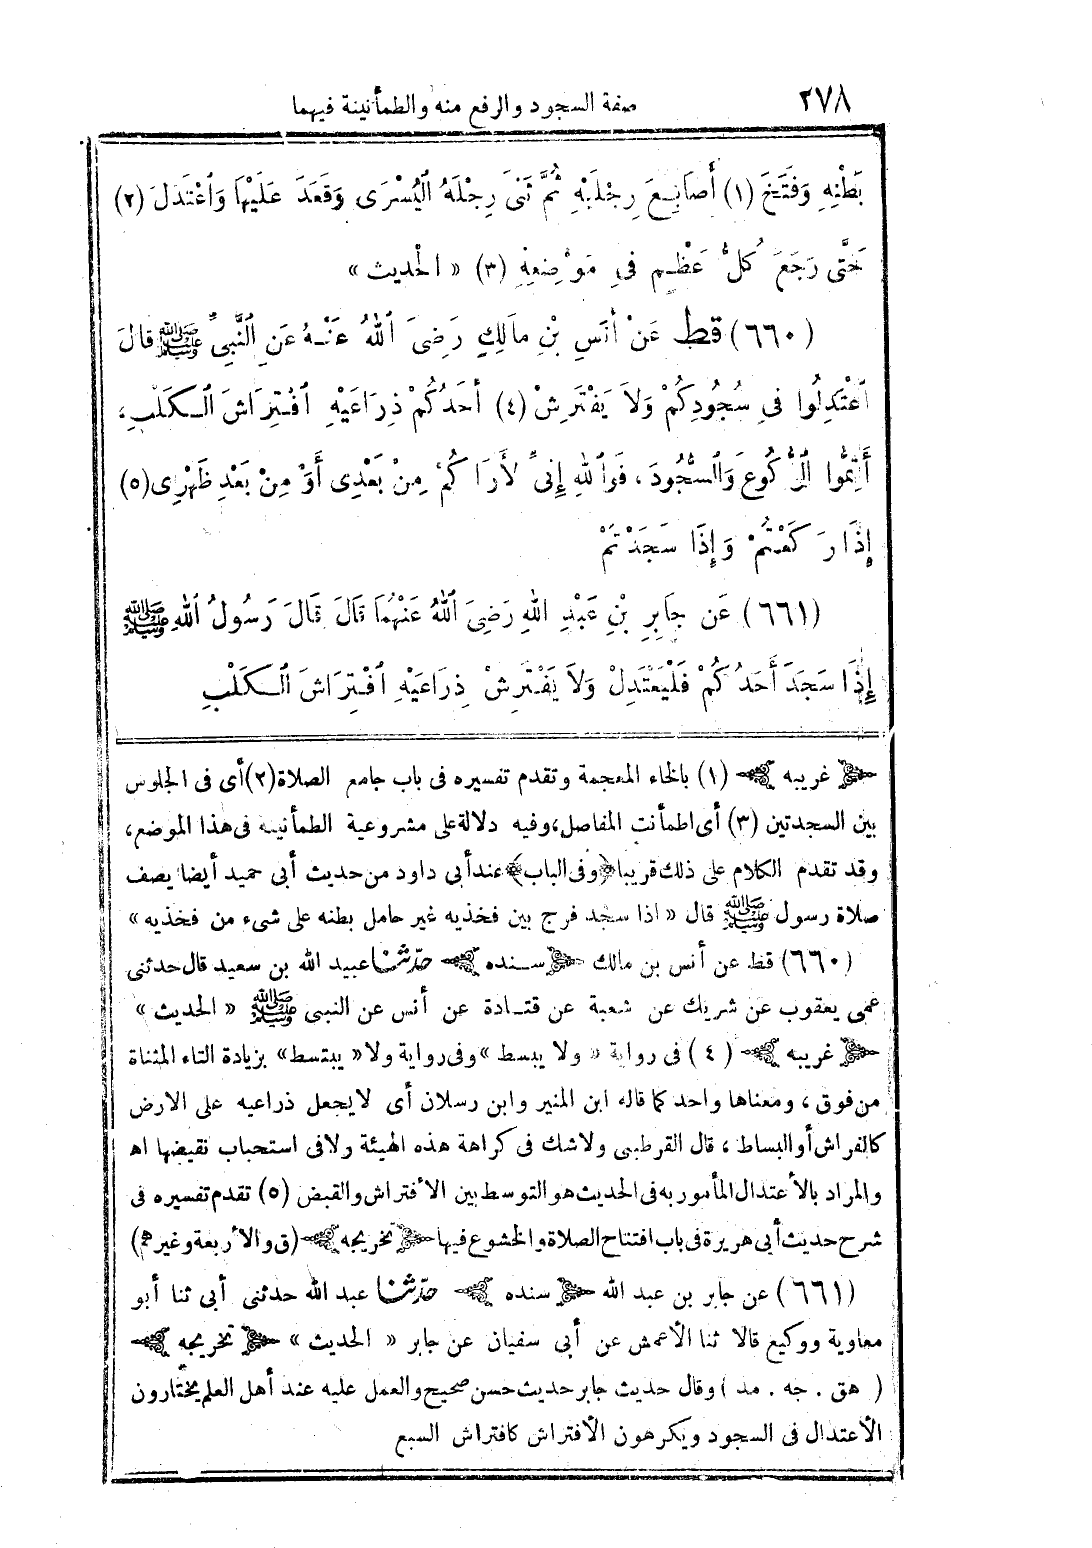 ٢٧٨ صفة السجود والرفع منه والطمأنينة فيهما
بَطْنِهِ وَفَتَخَ (١) أَصَابِعَ رِجْلَيْهِ ثُمَّ ثَنَى رِجْلَهُ الْيُسْرَى وَقَعَدَ عَلَيْهَا وَاعْتَدَلَ (٢)
حَتَّى رَجَعَ كُلُّ عَظْمٍ فِي مَوْضِعِهِ (٣) « الحديث »
(٦٦٠) قط عَنْ أَنَسِ بْنِ مَالِكٍ رَضِيَ اللهُ عَنْهُ عَنِ النَّبِيِّ ﷺ قَالَ
اعْتَدِلُوا فِي سُجُودِكُمْ وَلاَ يَفْتَرِشْ (٤) أَحَدُكُمْ ذِرَاعَيْهِ افْتِرَاشَ الْكَلْبِ،
أَتِمُّوا الرُّكُوعَ وَالسُّجُودَ ، فَوَاللهِ إِنِّي لَأَرَاكُمْ مِنْ بَعْدِي أَوْ مِنْ بَعْدِ ظَهْرِي (٥)
إِذَا رَكَعْتُمْ وَإِذَا سَجَدْتُمْ
(٦٦١) عَنْ جَابِرِ بْنِ عَبْدِ اللهِ رَضِيَ اللهُ عَنْهُمَا قَالَ قَالَ رَسُولُ اللهِ ﷺ
إِذَا سَجَدَ أَحَدُكُمْ فَلْيَعْتَدِلْ وَلاَ يَفْتَرِشْ ذِرَاعَيْهِ افْتِرَاشَ الْكَلْبِ
﴿ غريبه ﴾ (١) بالخاء المعجمة وتقدم تفسيره فى باب جامع الصلاة (٢) أى فى الجلوس
بين السجدتين (٣) أى اطمأنت المفاصل، وفيه دلالة على مشروعية الطمأنينة فى هذا الموضع،
وقد تقدم الكلام على ذلك قريبا ﴿ وفى الباب ﴾ عند أبى داود من حديث أبى حميد أيضا يصف
صلاة رسول ﷺ قال « اذا سجد فرج بين فخذيه غير حامل بطنه على شىء من فخذيه »
(٦٦٠) قط عن أنس بن مالك ﴿ سنده ﴾ حدّثنا عبيد الله بن سعيد قال حدثنى
عمى يعقوب عن شريك عن شعبة عن قتادة عن أنس عن النبى ﷺ « الحديث »
﴿ غريبه ﴾ (٤) فى رواية « ولا يبسط » وفى رواية ولا « يبتسط » بزيادة التاء المثناة
من فوق ، ومعناها واحد كما قاله ابن المنير وابن رسلان أى لا يجعل ذراعيه على الارض
كالفراش أو البساط ، قال القرطبى ولا شك فى كراهة هذه الهيئة ولا فى استحباب نقيضها اه
والمراد بالأعتدال المأمور به فى الحديث هو التوسط بين الأفتراش والقبض (٥) تقدم تفسيره فى
شرح حديث أبى هريرة فى باب افتتاح الصلاة والخشوع فيها ﴿ تخريجه ﴾ (ق والأربعة وغيرهم)
(٦٦١) عن جابر بن عبد الله ﴿ سنده ﴾ حدّثنا عبد الله حدثنى أبى ثنا أبو
معاوية ووكيع قالا ثنا الأعمش عن أبى سفيان عن جابر « الحديث » ﴿ تخريجه ﴾
( هق . جه . مذ ) وقال حديث جابر حديث حسن صحيح والعمل عليه عند أهل العلم يختارون
الأعتدال فى السجود ويكرهون الأفتراش كافتراش السبع